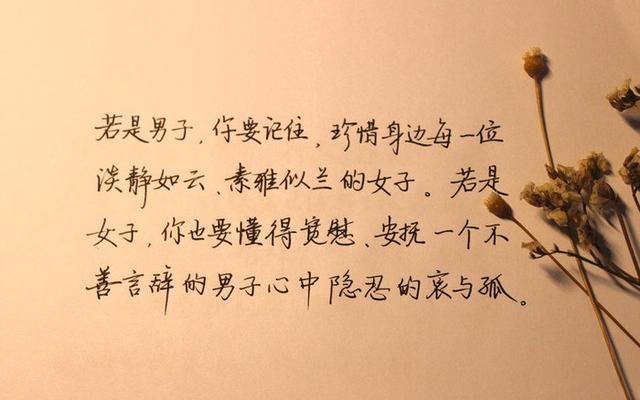 若是男子，你要记住，珍惜身边每一位
淡静如云、素雅似兰的女子。若是
女子，你也要懂得宽慰、安抚一个不
善言辞的男子心中隐忍的哀与孤。